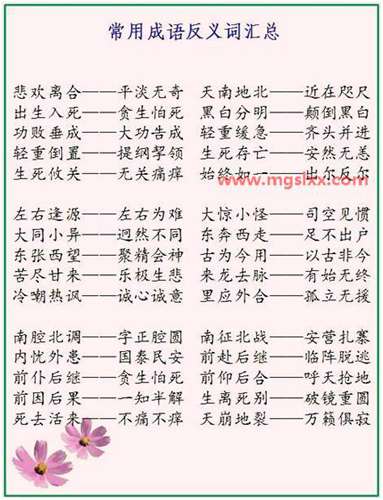 常用成语反义词汇总
悲欢离合——平淡无奇 天南地北——近在咫尺
出生入死——贪生怕死 黑白分明——颠倒黑白
功败垂成——大功告成 轻重缓急——齐头并进
轻重倒置——提纲挈领 生死存亡——安然无恙
生死攸关——无关痛痒 始终如一——出尔反尔
www.mgslxx.com
左右逢源——左右为难 大惊小怪——司空见惯
大同小异——迥然不同 东奔西走——足不出户
东张西望——聚精会神 古为今用——以古非今
苦尽甘来——乐极生悲 来龙去脉——有始无终
冷嘲热讽——诚心诚意 里应外合——孤立无援
南腔北调——字正腔圆 南征北战——安营扎寨
内忧外患——国泰民安 前赴后继——临阵脱逃
前仆后继——贪生怕死 前仰后合——呼天抢地
前因后果——一知半解 生离死别——破镜重圆
死去活来——不痛不痒 天崩地裂——万籁俱寂